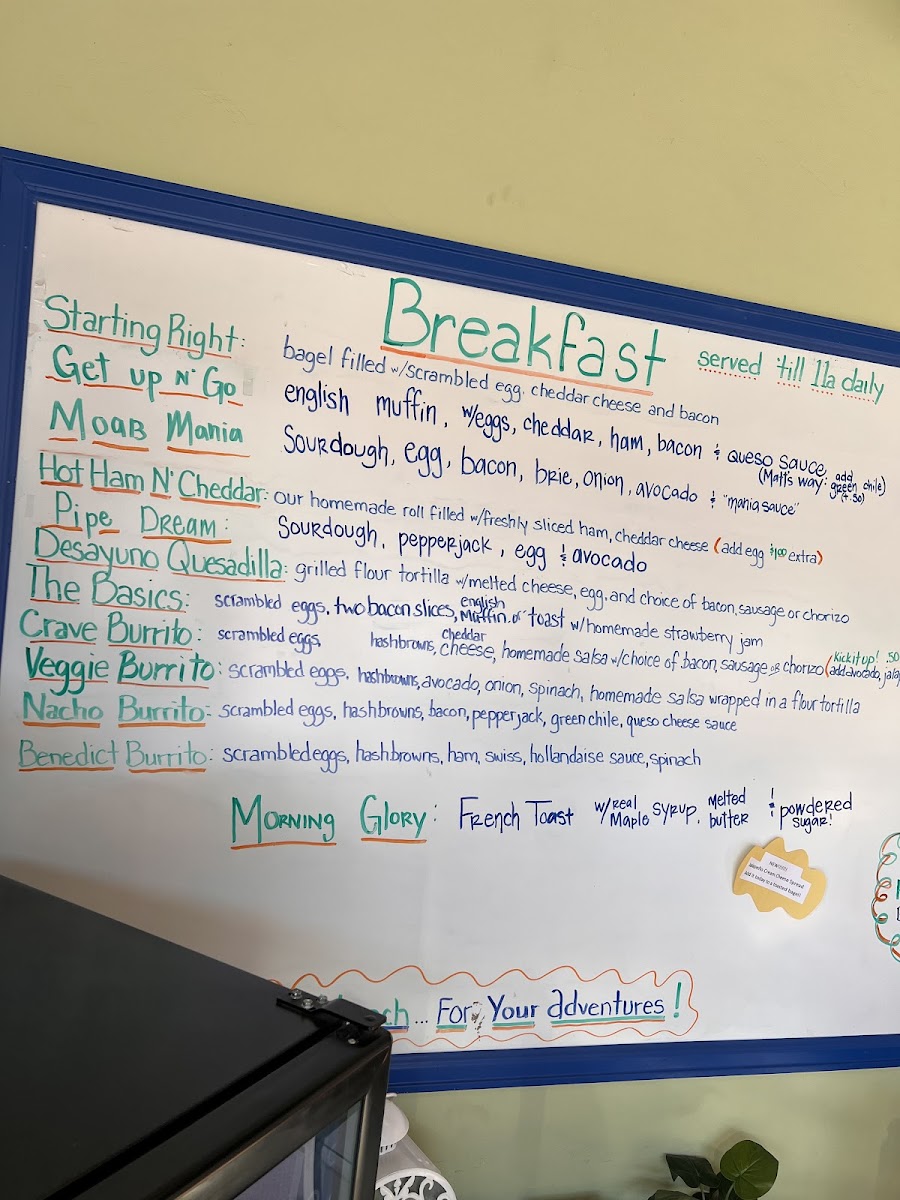 Breakfast served 'till 11a daily
Starting Right: bagel filled w/scrambled egg, cheddar cheese and bacon
Get up N' Go english muffin, w/eggs, cheddar, ham, bacon & queso sauce (Matt's way: add green chile) (+.50)
Moab Mania Sourdough, egg, bacon, brie, onion, avocado & "mania sauce"
Hot Ham N' Cheddar: our homemade roll filled w/freshly sliced ham, cheddar cheese (add egg $1.00 extra)
Pipe Dream: Sourdough, pepperjack, egg & avocado
Desayuno Quesadilla: grilled flour tortilla w/melted cheese, egg, and choice of bacon, sausage or chorizo
The Basics: scrambled eggs, two bacon slices, english muffin or toast w/homemade strawberry jam
Crave Burrito: scrambled eggs, hashbrowns, cheddar cheese, homemade salsa w/choice of bacon, sausage or chorizo (Kick it up! .50 add avocado,
Veggie Burrito: scrambled eggs, hashbrowns, avocado, onion, spinach, homemade salsa wrapped in a flour tortilla
Nacho Burrito: scrambled eggs, hashbrowns, bacon, pepperjack, green chile, queso cheese sauce
Benedict Burrito: scrambled eggs, hashbrowns, ham, swiss, hollandaise sauce, spinach
Morning Glory: French Toast w/real Maple syrup, melted butter & powdered sugar!
Cream Cheese Spread
Add it today to a toasted bagel!
... For Your adventures!